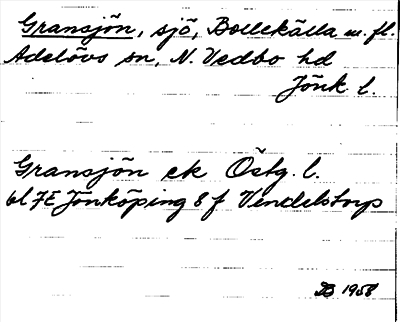 Gransjön, sjö, Bollekälla m. fl.
Adelövs sn, N. Vedbo hd
Jönk l.
Gransjön ek Östg. l.
bl 7E Jönköping 8 f Vendelstorp
1958